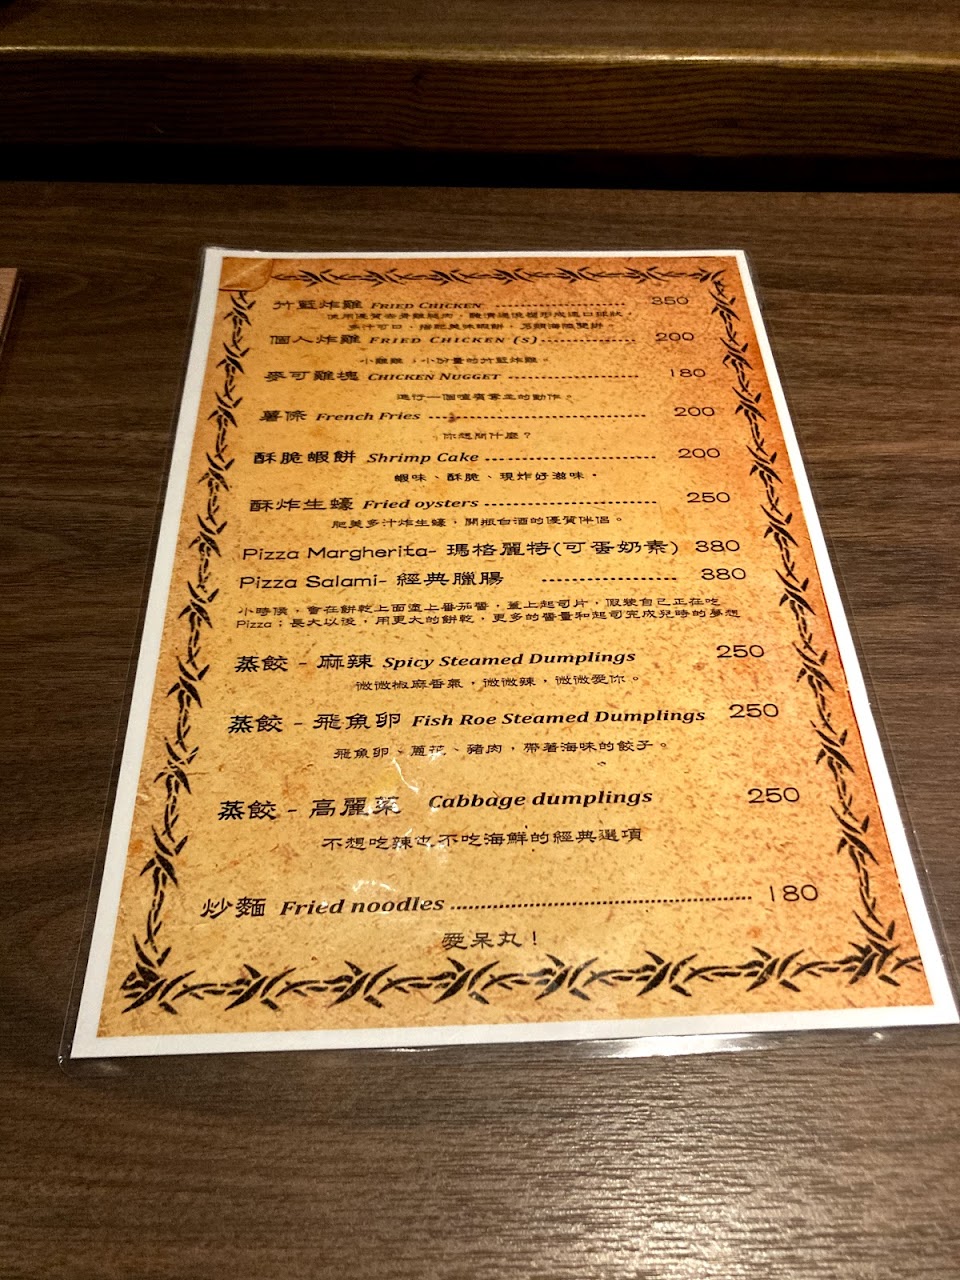 竹籃炸雞 FRIED CHICKEN ........................ 350
使用優質去骨雞腿肉，醃漬過後
多汁可口，搭配美味蝦餅，另類海陸雙拼。
個人炸雞 FRIED CHICKEN (S)................. 200
小雞雞；小份量的竹籃炸雞。
麥可雞塊 CHICKEN NUGGET ........................ 180
進行一個喧賓奪主的動作。
薯條 French Fries ........................ 200
你想問什麼？
酥脆蝦餅 Shrimp Cake ........................ 200
蝦味、酥脆、現炸好滋味。
酥炸生蠔 Fried oysters ........................ 250
肥美多汁炸生蠔，開瓶白酒的優質伴侶。
Pizza Margherita- 瑪格麗特(可蛋奶素) 380
Pizza Salami- 經典臘腸 ................. 380
小時候，會在餅乾上面塗上番茄醬，蓋上起司片，假裝自己正在吃
Pizza；長大以後，用更大的餅乾，更多的醬量和起司完成兒時的夢想
蒸餃 - 麻辣 Spicy Steamed Dumplings 250
微微椒麻香氣，微微辣，微微愛你。
蒸餃 - 飛魚卵 Fish Roe Steamed Dumplings 250
飛魚卵、蔥花、豬肉，帶著海味的餃子。
蒸餃 - 高麗菜 Cabbage dumplings 250
不想吃辣也不吃海鮮的經典選項
炒麵 Fried noodles ........................ 180
愛呆丸！